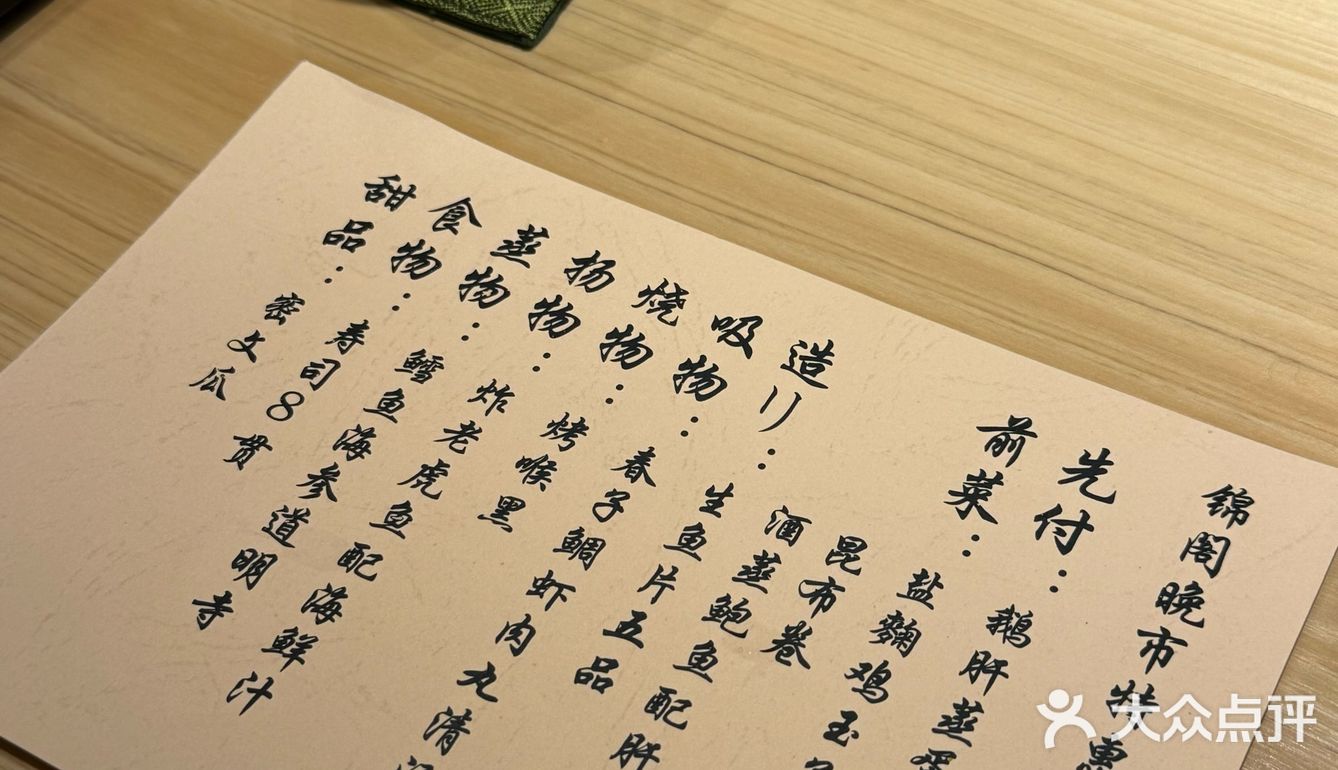 锦阁晚市特惠
先付：鹅肝蒸
前菜：盐麹鸡玉
昆布卷
酒蒸鲍鱼配肝
造り：生鱼片五品
吸物：春子鲷虾肉丸清
烧物：烤喉黑
扬物：炸老虎鱼配海鲜汁
蒸物：鳕鱼海参道明寺
食物：寿司8贯
甜品：密文瓜
大众点评